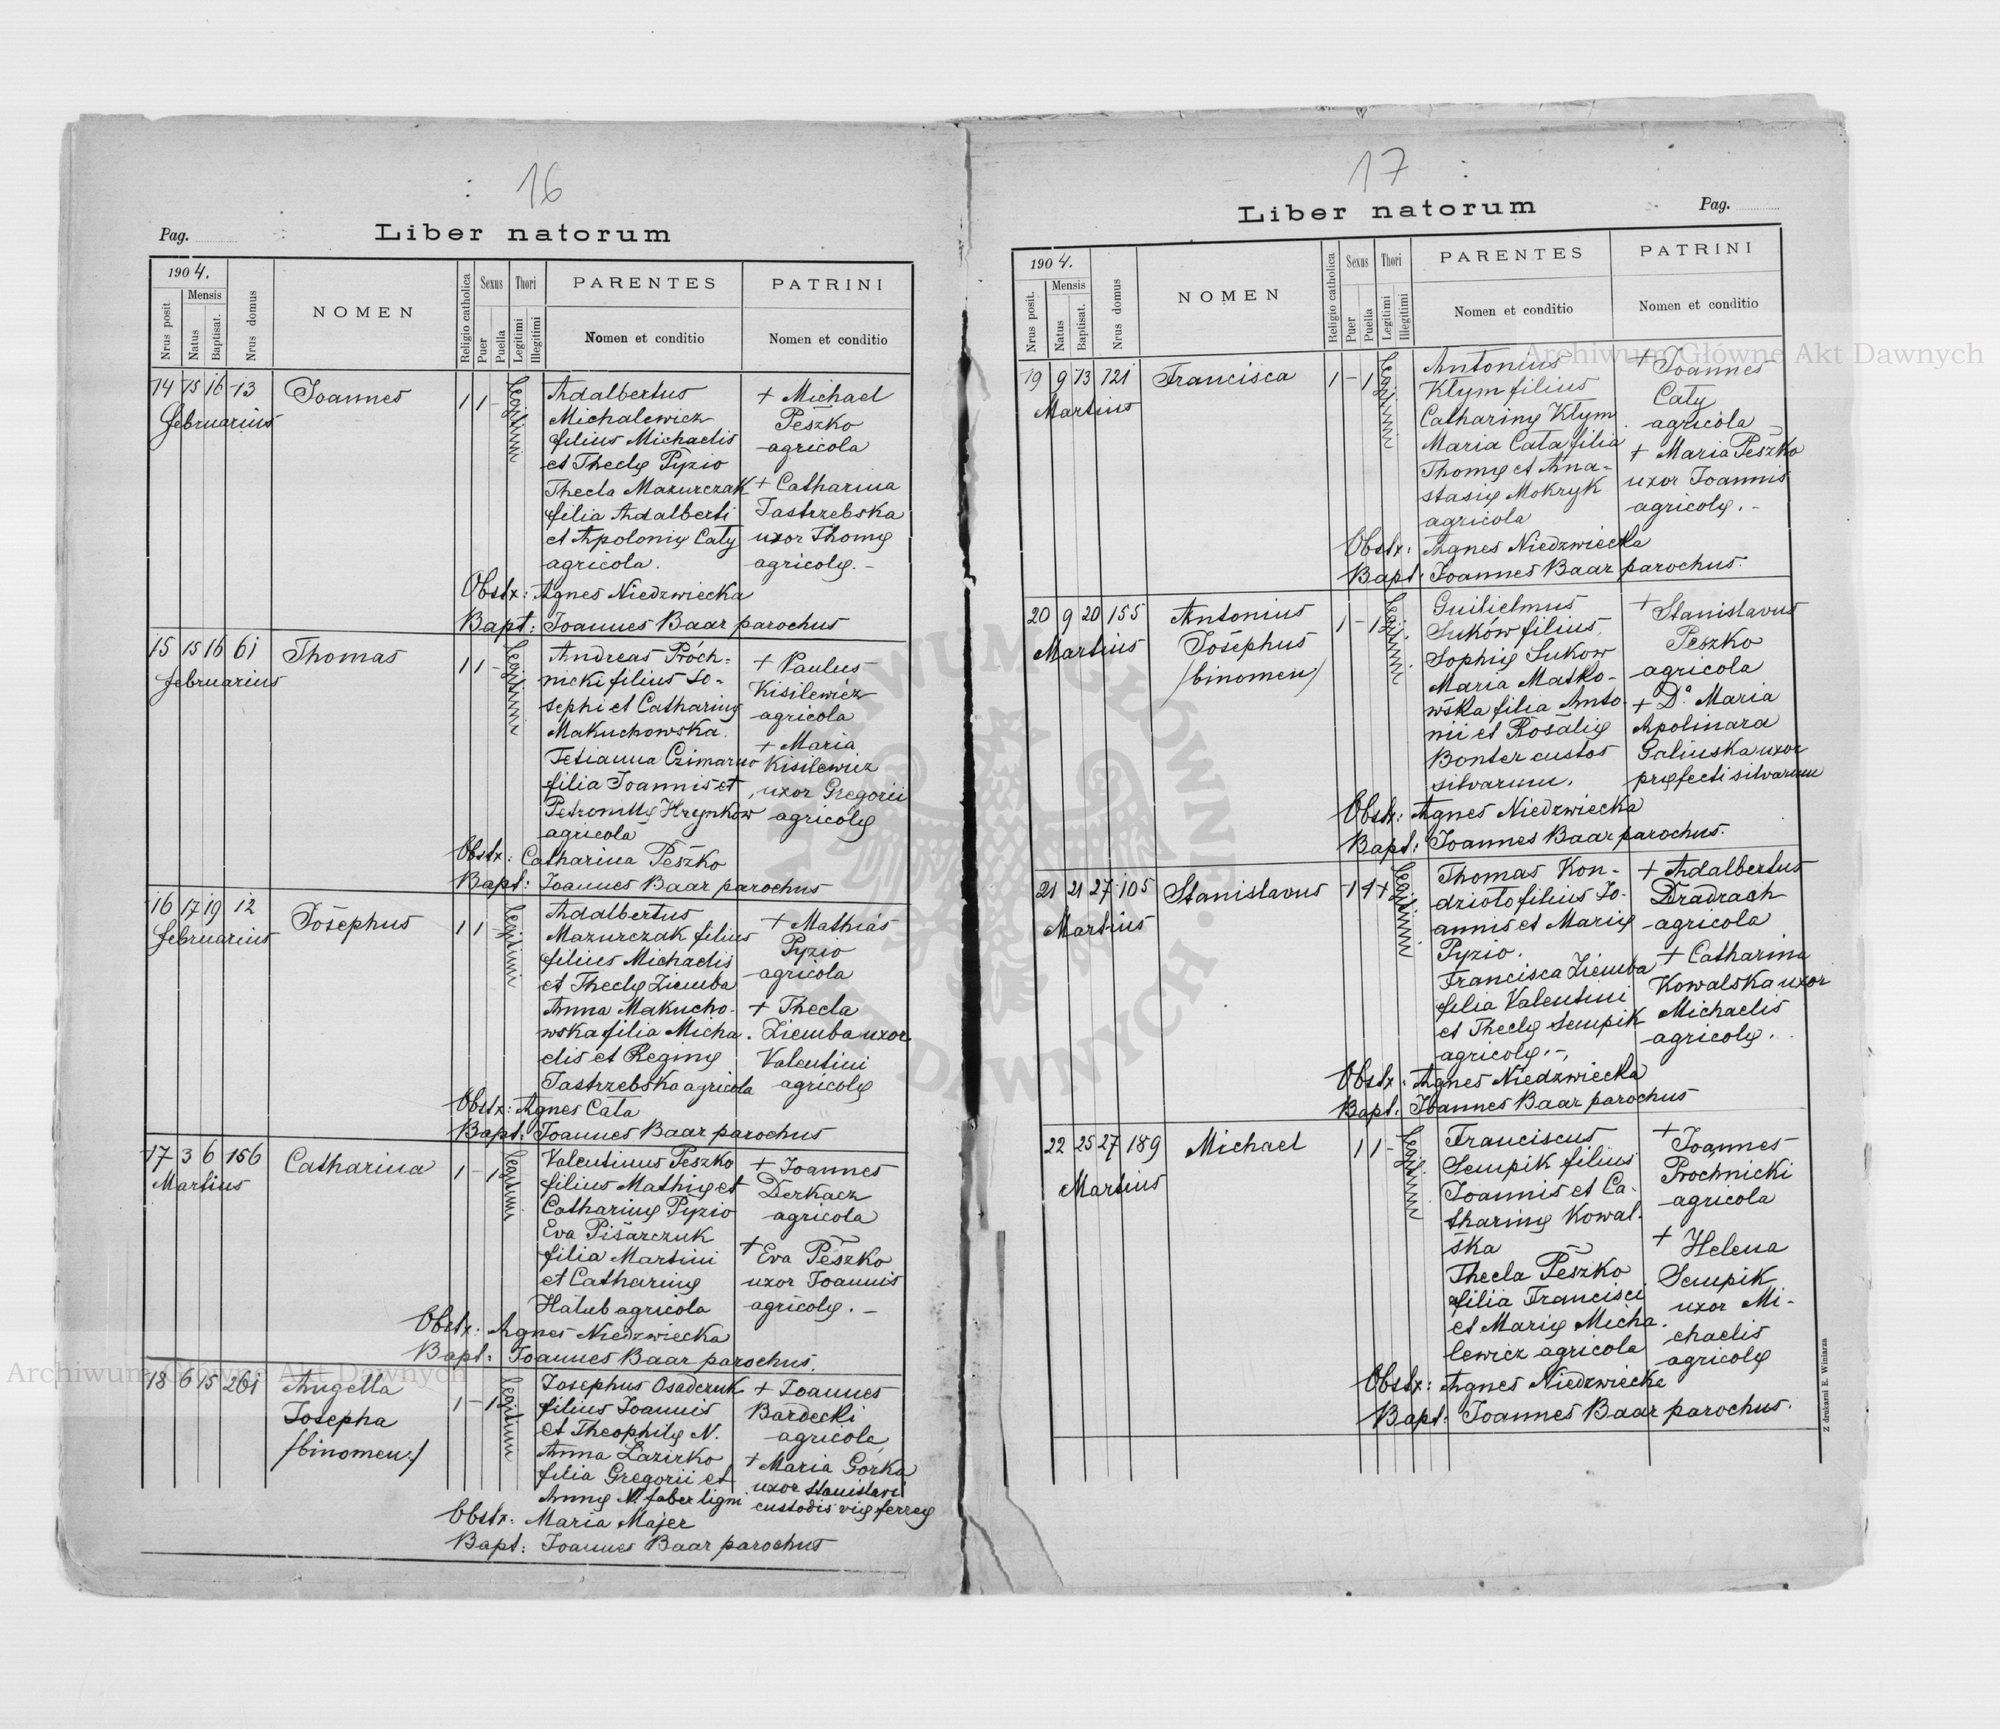 16
Pag.
Liber natorum
1904.
Nrus posit.
Mensis
Natus
Baptisat.
Nrus domus
NOMEN
Religio catholica
Sexus
Puer
Puella
Thori
Legitimi
Illegitimi
PARENTES
Nomen et conditio
PATRINI
Nomen et conditio
14 15 16 13
februarius
Joannes
1 1 -
legitimi
Adalbertus
Michalewicz
filius Michaelis
et Theclę Pyzio
Thecla Mazurczak
filia Adalberti
et Apolonię Cały
agricola.
+ Michael
Peszko
agricola
+ Catharina
Jastrzebska
uxor Thomę
agricolę. -
Obstx: Agnes Niedzwiecka
Bapt: Joannes Baar parochus
15 15 16 61
februarius
Thomas
1 1 -
legitimi
Andreas Próch-
nicki filius Jo-
sephi et Catharinę
Makuchowska.
Tetianna Czimarno
filia Joannis et
Petronillę Hrynków
agricola
+ Paulus
Kisilewicz
agricola
+ Maria
Kisilewicz
uxor Gregorii
agricolę
Obstx: Catharina Peszko
Bapt: Joannes Baar parochus
16 17 19 12
februarius
Josephus
1 1 -
legitimi
Adalbertus
Mazurczak filius
filius Michaelis
et Theclę Ziemba
Anna Makucho-
wska filia Micha.
elis et Reginę
Jastrzebska agricola
+ Mathias
Pyzio
agricola
+ Thecla
Ziemba uxor
Valentini
agricolę
Obstx: Agnes Cała
Bapt: Joannes Baar parochus
17 3 6 156
Martius
Catharina
1 - 1
legitimi
Valentinus Peszko
filius Mathię et
Catharinę Pyzio
Eva Pisarczuk
filia Martini
et Catharinę
Hałub agricola
+ Joannes
Derkacz
agricola
+ Eva Peszko
uxor Joannis
agricolę. -
Obstx: Agnes Niedzwiecka
Bapt: Joannes Baar parochus.
18 6 15 261
Angella
Josepha
/binomen:/
1 - 1
legitimi
Josephus Osadczuk
filius Joannis
et Theophilę N.
Anna Łazirko
filia Gregorii et
Annę N. faber lign.
+ Joannes
Bardecki
agricola
+ Maria Górka
uxor Stanislavi
custodis vię ferreę
Obstx: Maria Majer
Bapt: Joannes Baar parochus
17
Liber natorum
Pag.
1904.
Nrus posit.
Mensis
Natus
Baptisat.
Nrus domus
NOMEN
Religio catholica
Sexus
Puer
Puella
Thori
Legitimi
Illegitimi
PARENTES
Nomen et conditio
PATRINI
Nomen et conditio
19 9 13 121
Martius
Francisca
1 - 1
legitimi
Antonius
Kłym filius
Catharinę Kłym.
Maria Cała filia
Thomę et Ana-
stasię Mokryk
agricola
+ Joannes
Cały
agricola
+ Maria Peszko
uxor Joannis
agricolę. -
Obstx: Agnes Niedzwiecka
Bapt: Joannes Baar parochus.
20 9 20 155
Martius
Antonius
Josephus
/binomen/
1 - 1
legitimi
Guilielmus
Suków filius
Sophię Sukow
Maria Matko-
wska filia Anto-
nii et Rosalię
Bonter custos
silvarum.
+ Stanislavus
Peszko
agricola
+ Dª Maria
Apolinara
Galinska uxor
pręfecti silvarum
Obstx: Agnes Niedzwiecka
Bapt: Joannes Baar parochus.
21 21 27 105
Martius
Stanislavus
legitimi
Thomas Kon-
dzioło filius Jo-
annis et Marię
Pyzio.
Francisca Ziemba
filia Valentini
et Theclę Sempik
agricolę. -
+ Adalbertus
Dradrach
agricola
+ Catharina
Kowalska uxor
Michaelis
agricolę.
Obstx: Agnes Niedzwiecka
Bapt: Joannes Baar parochus
22 25 27 189
Martius
Michael
1 1 -
legitimi
Franciscus
Sempik filius
Joannis et Ca-
tharinę Kowal-
ska
Thecla Peszko
filia Francisci
et Marię Micha.
lewicz agricola
+ Joannes
Prochnicki
agricola
+ Helena
Sempik
uxor Mi-
chaelis
agricolę
Obstx: Agnes Niedzwiecke
Bapt: Joannes Baar parochus.
Z drukarni E. Winiarza
Archiwum Główne Akt Dawnych
Archiwum Główne Akt Dawnych
ARCHIWUM GŁÓWNE AKT DAWNYCH